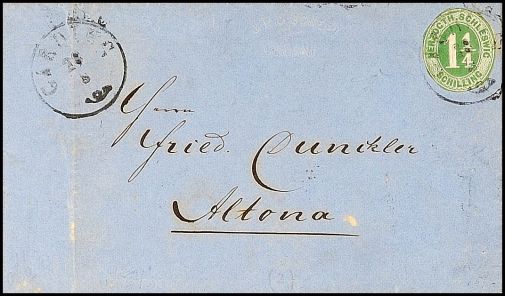 HERZOGTH. SCHLESWIG
1¼
SCHILLING
Herrn
Fried. Dunckler
Altona